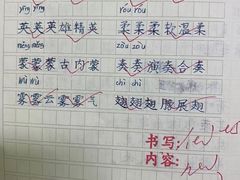 yīng yīng róu róu
英英英雄精英 柔柔柔软温柔
měng měng zòu zòu
蒙蒙蒙古内蒙 奏奏演奏合奏
wù wù chì chì
雾雾云雾雾气 翅翅翅膀展翅
书写:
内容: